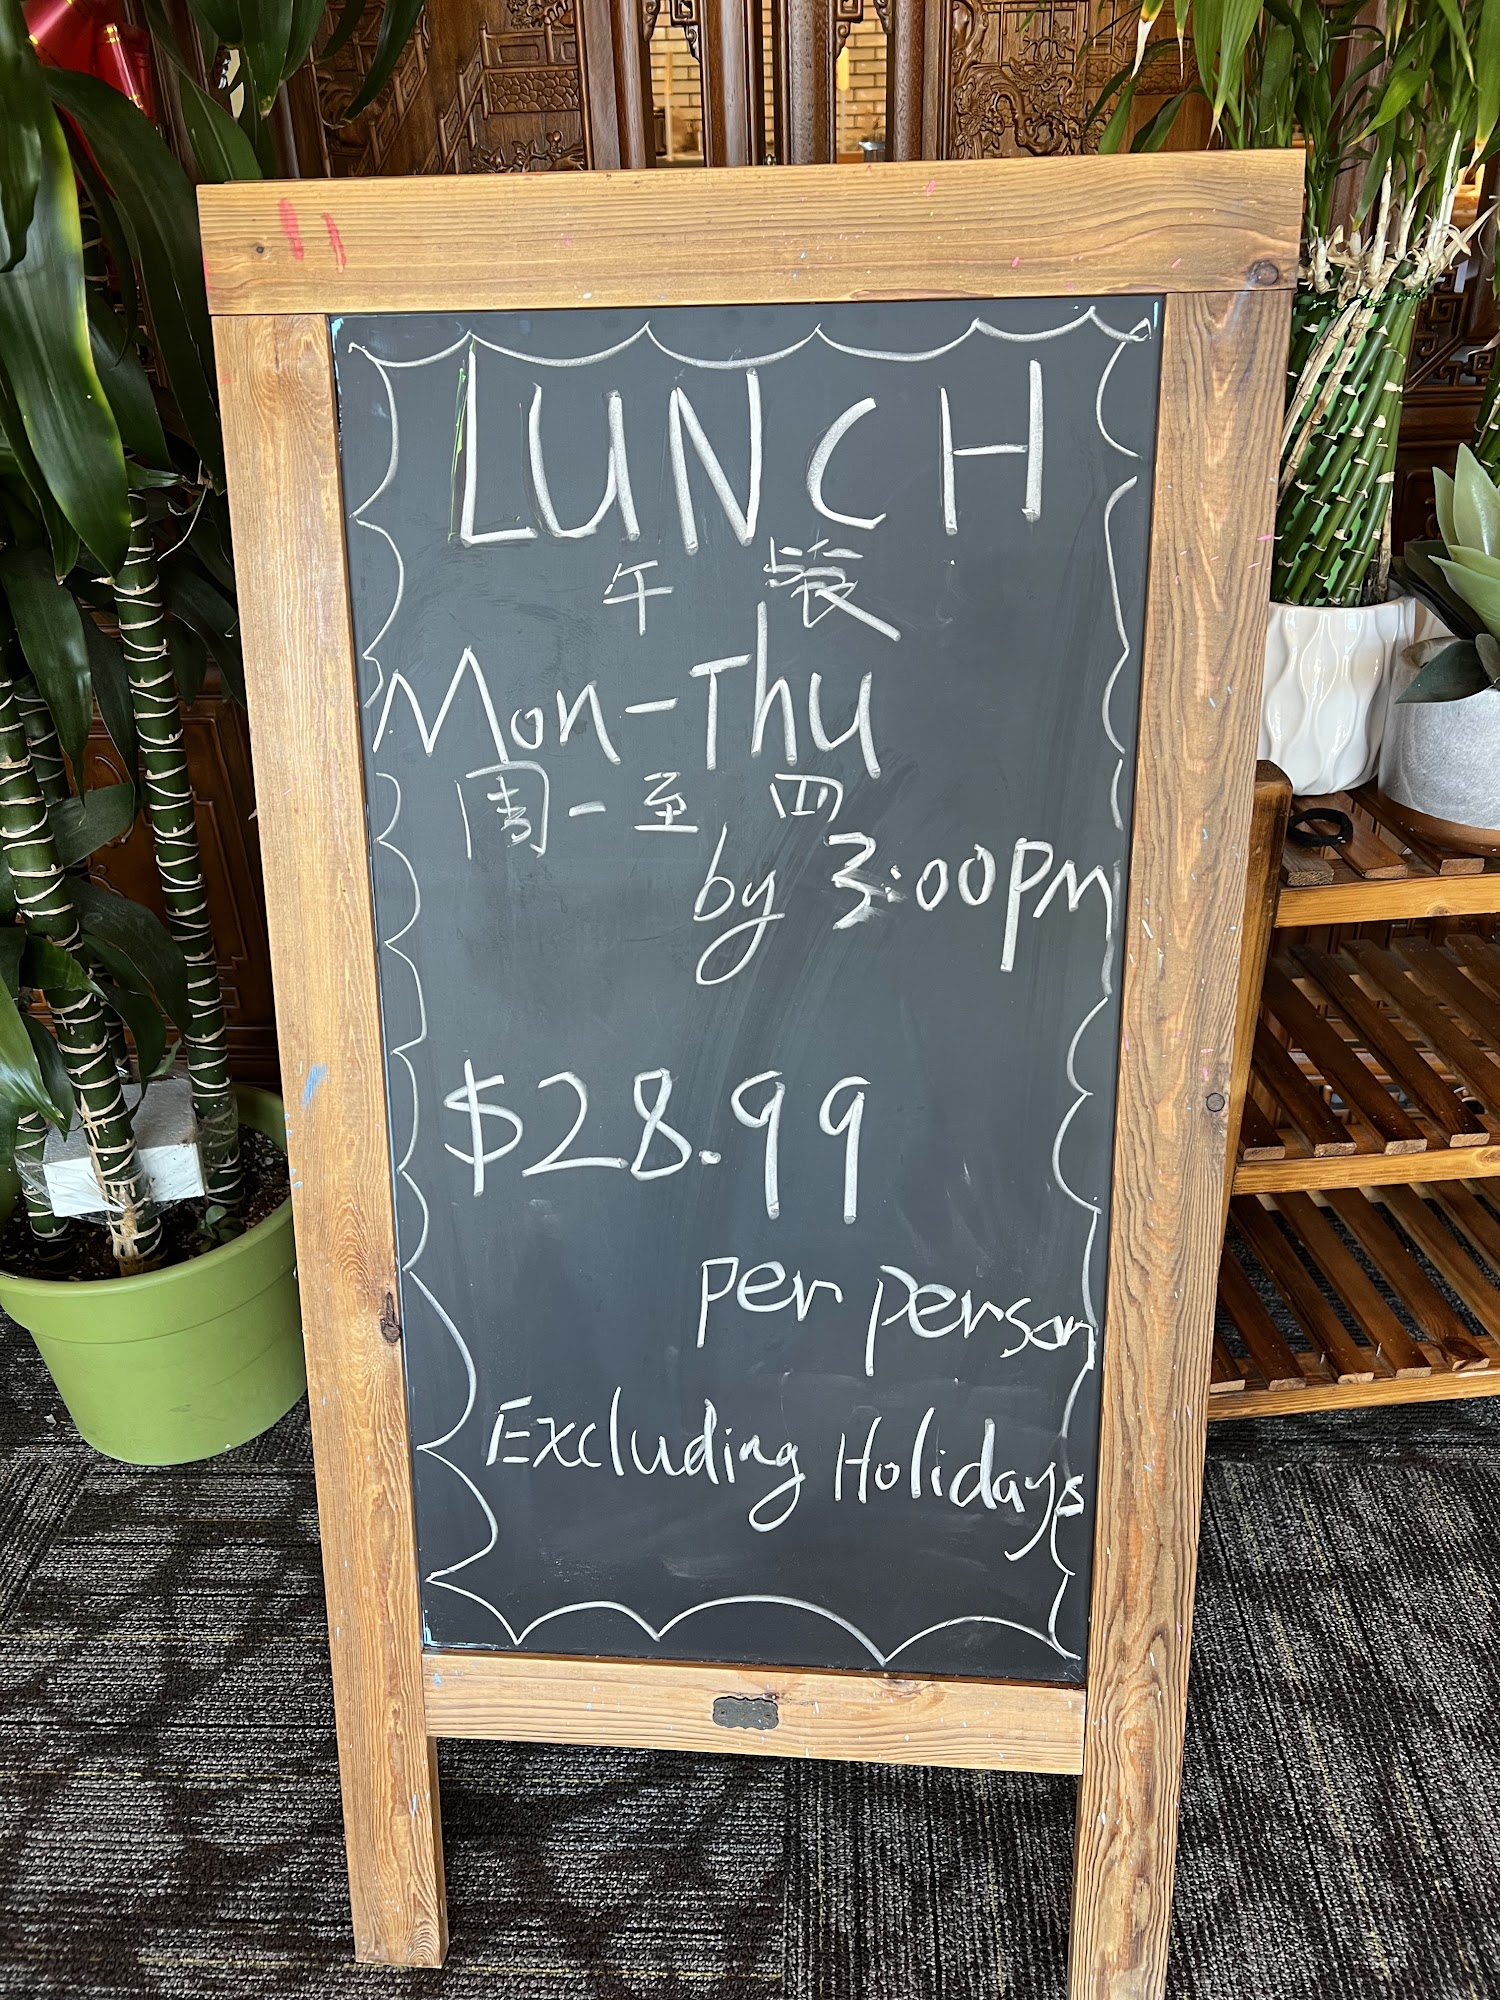 LUNCH
午餐
Mon-Thu
周一至四
by 3:00PM
$28.99
per person
Excluding Holidays